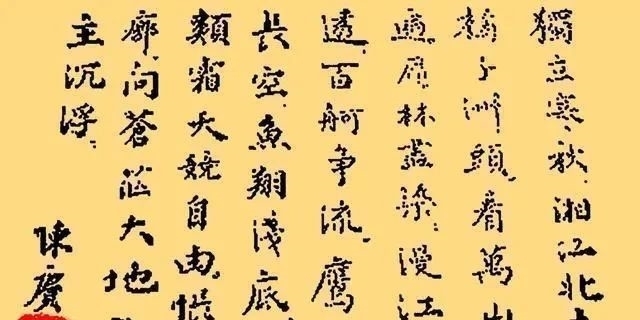 獨立寒秋湘江北
橘子洲頭看萬山
遍層林盡染漫江
透百舸爭流鷹
長空魚翔淺底
類霜天競自由悵
廓問蒼茫大地
主沉浮
陳